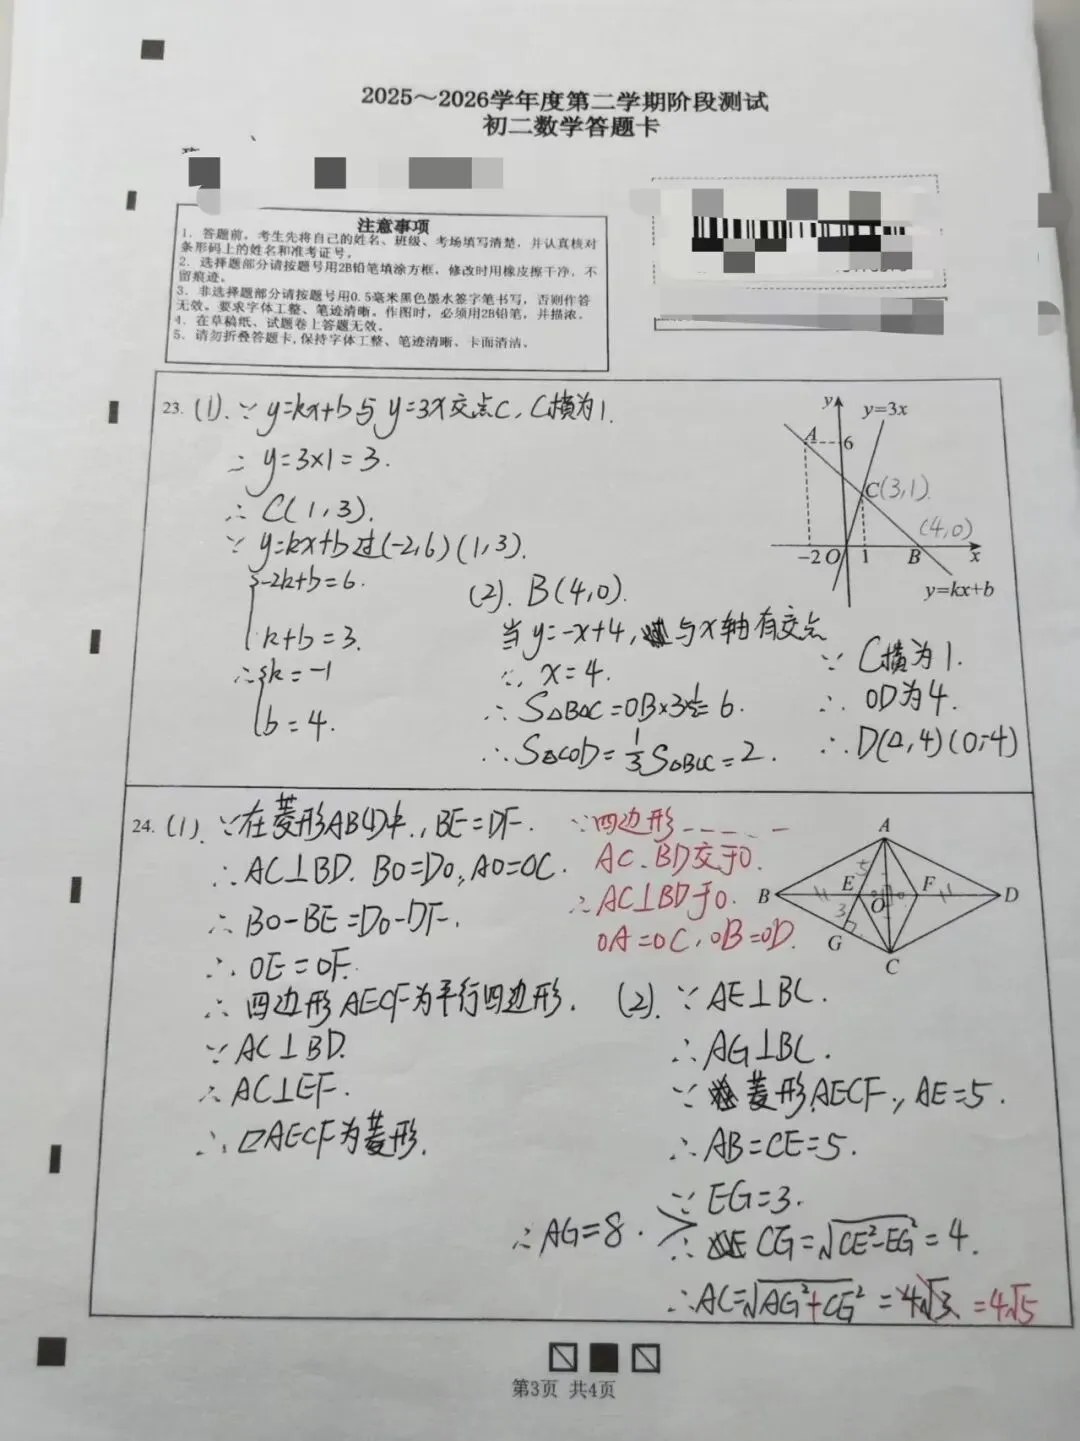 2025～2026学年度第二学期阶段测试
初二数学答题卡
注意事项
1. 答题前，考生先将自己的姓名、班级、考场填写清楚，并认真核对
条形码上的姓名和准考证号。
2. 选择题部分请按题号用2B铅笔填涂方框，修改时用橡皮擦干净，不
留痕迹。
3. 非选择题部分请按题号用0.5毫米黑色墨水签字笔书写，否则作答
无效。要求字体工整、笔迹清晰。作图时，必须用2B铅笔，并描浓。
4. 在草稿纸、试题卷上答题无效。
5. 请勿折叠答题卡,保持字体工整、笔迹清晰、卡面清洁。
23. (1). ∵ y=kx+b与 y=3x交点C, C横为1.
∴ y=3×1=3.
∴ C(1,3).
∵ y=kx+b过(-2,6)(1,3).
{-2k+b=6.
k+b=3.
∴{k=-1
b=4.
(2). B(4,0).
当y=-x+4, 与x轴有交点
∴ x=4.
∴ S△BOC=OB×3×½=6.
∴ S△COD=⅓S△BOC=2.
∵ C横为1.
∴ OD为4.
∴ D(0,4)(0,-4)
y
y=3x
A
6
C(3,1).
(4,0)
-2 O 1 B x
y=kx+b
24. (1). ∵在菱形ABCD中, BE=DF.
∴ AC⊥BD. BO=DO, AO=OC.
∴ BO-BE=DO-DF.
∴ OE=OF.
∴ 四边形AECF为平行四边形.
∵ AC⊥BD.
∴ AC⊥EF.
∴ ▱AECF为菱形.
∵四边形----
AC、BD交于O.
∴ AC⊥BD于O.
OA=OC, OB=OD.
A
5
B E O F D
3
G
C
(2). ∵ AE⊥BC.
∴ AG⊥BC.
∵ 菱形AECF, AE=5.
∴ AB=CE=5.
∵ EG=3.
∴ AG=8.
∴ CG=√CE²-EG²=4.
∴ AC=√AG²+CG²=4√3 =4√5
第3页 共4页